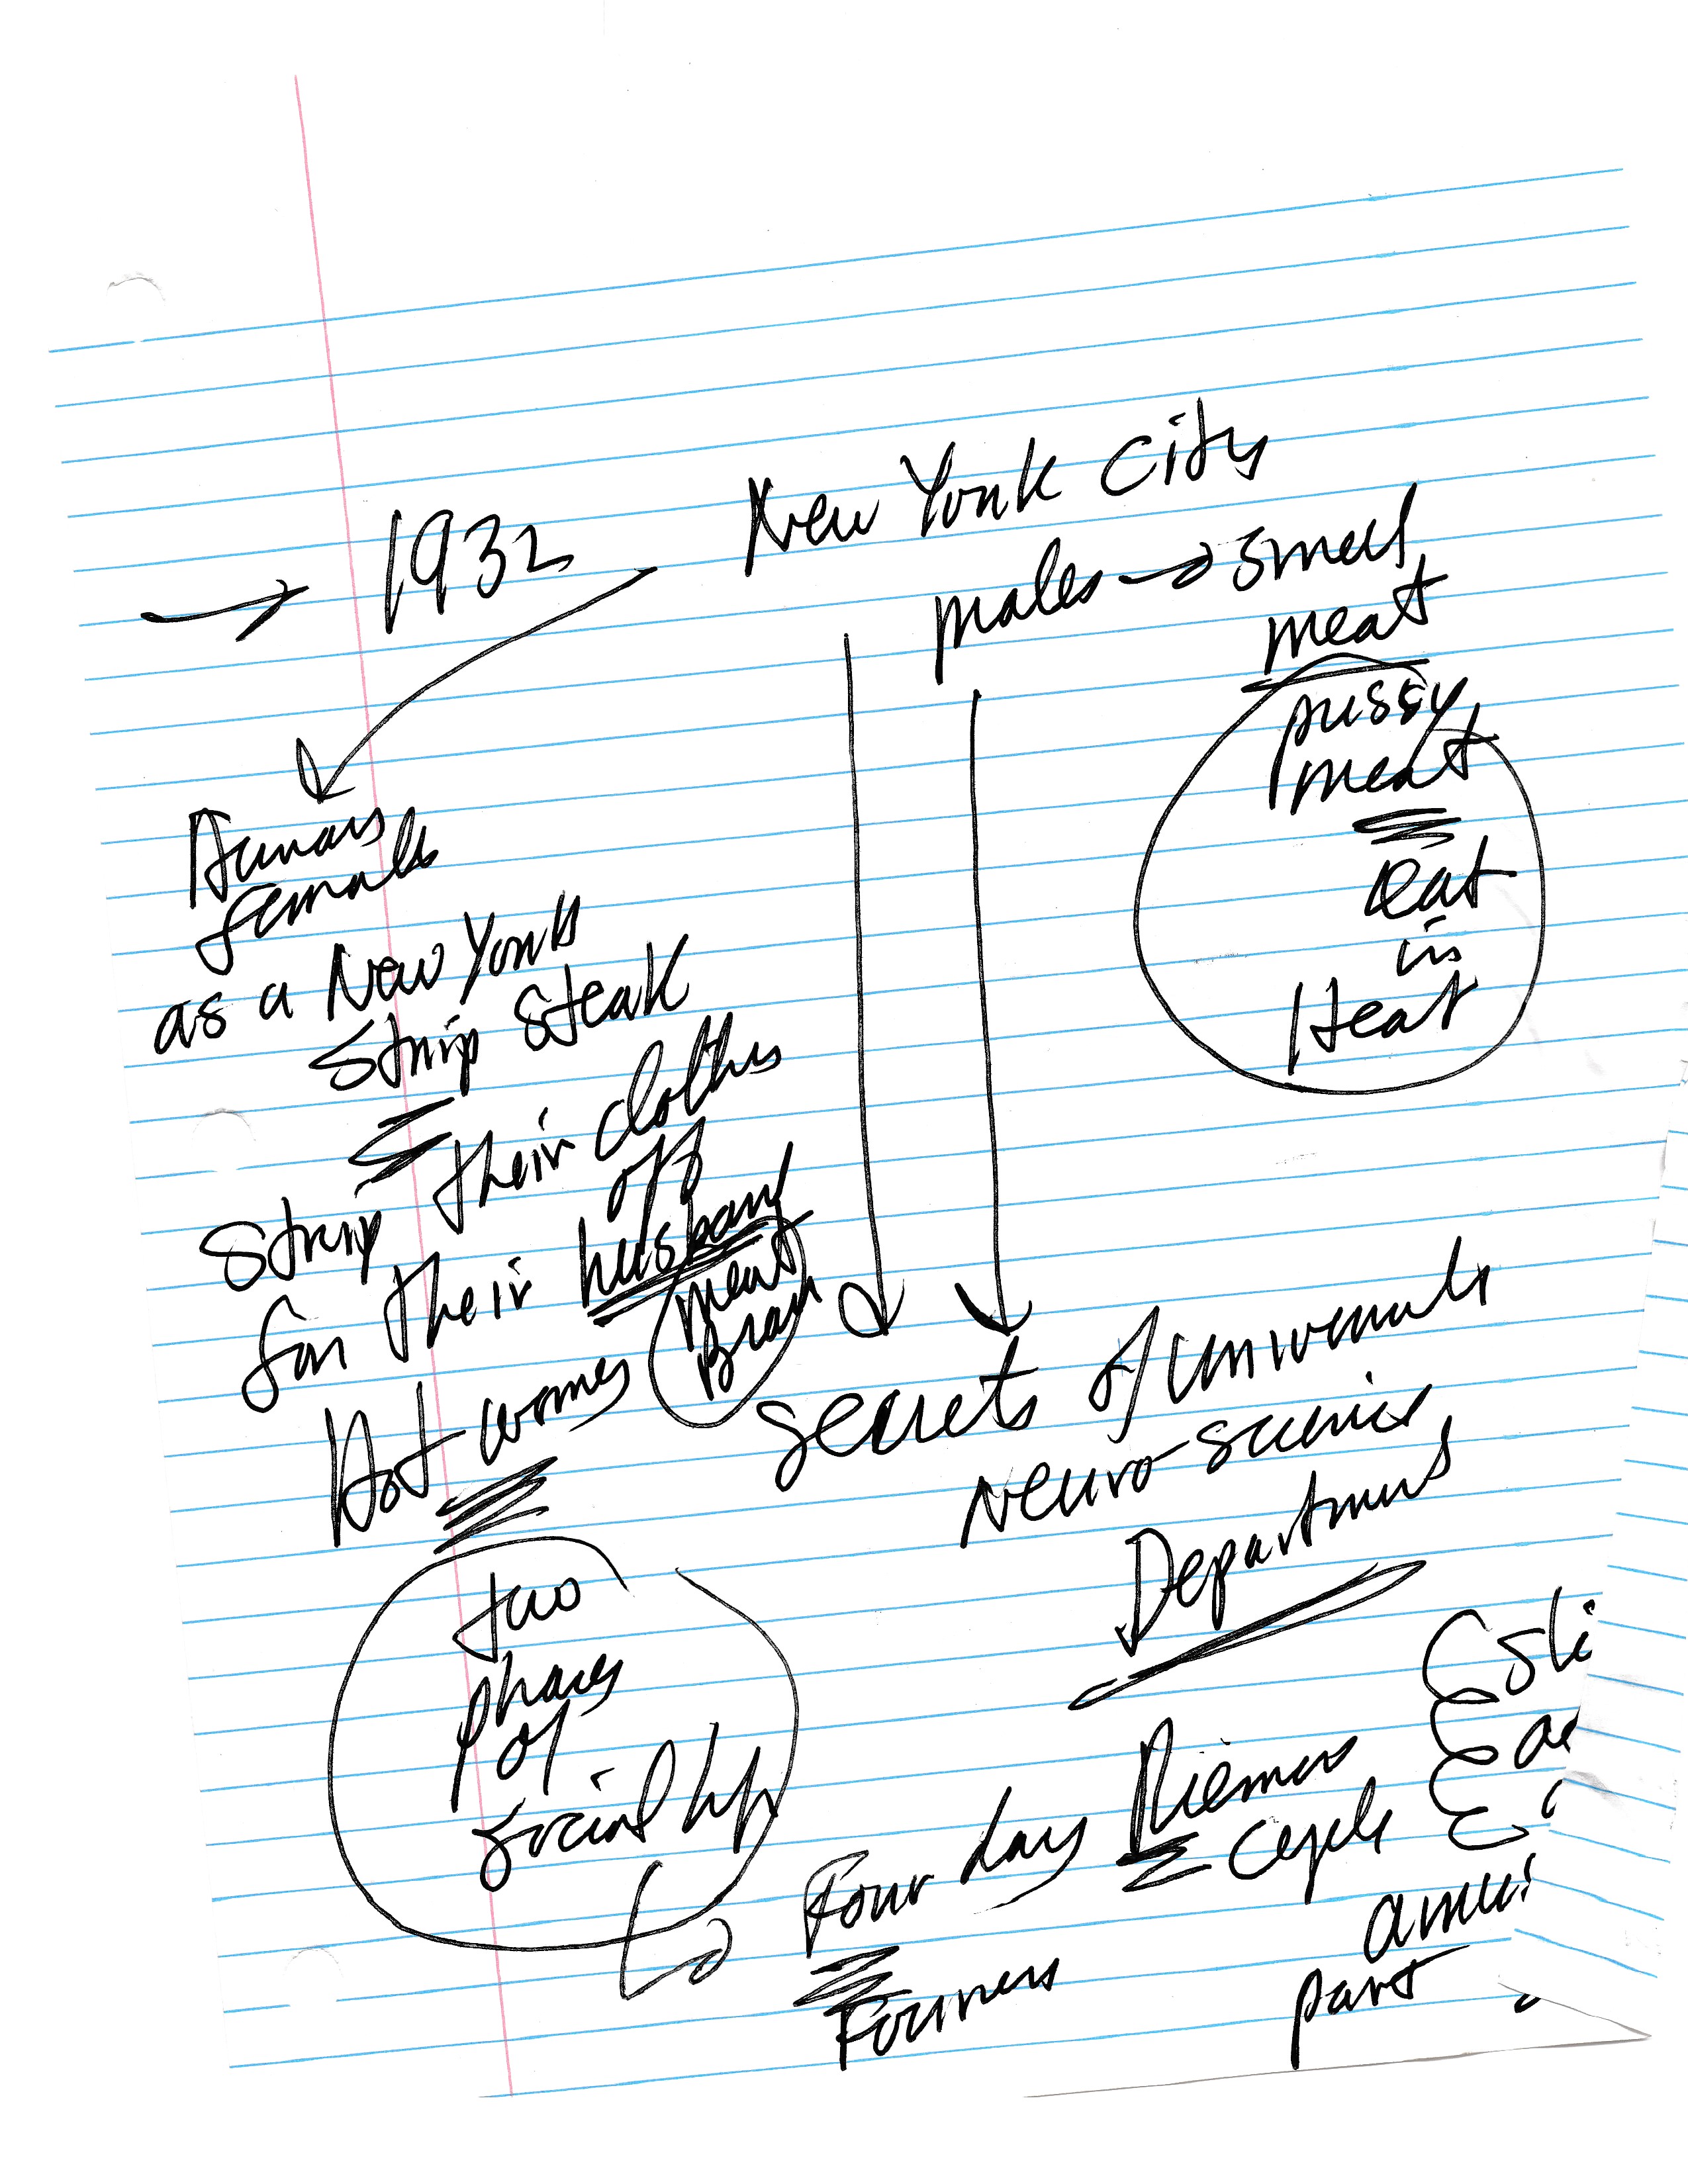 → 1932
New York City
males → smell
meat
pussy
meat
eat
in
Heat
Human
female
as a New York
Strip Steak
Strip their clothes
off
for their husband
meat
Brain
Hot women
secrets of
Neuro-science
Department
two
phases
of
social life
Four day Riemann
cycle
Fourier
part